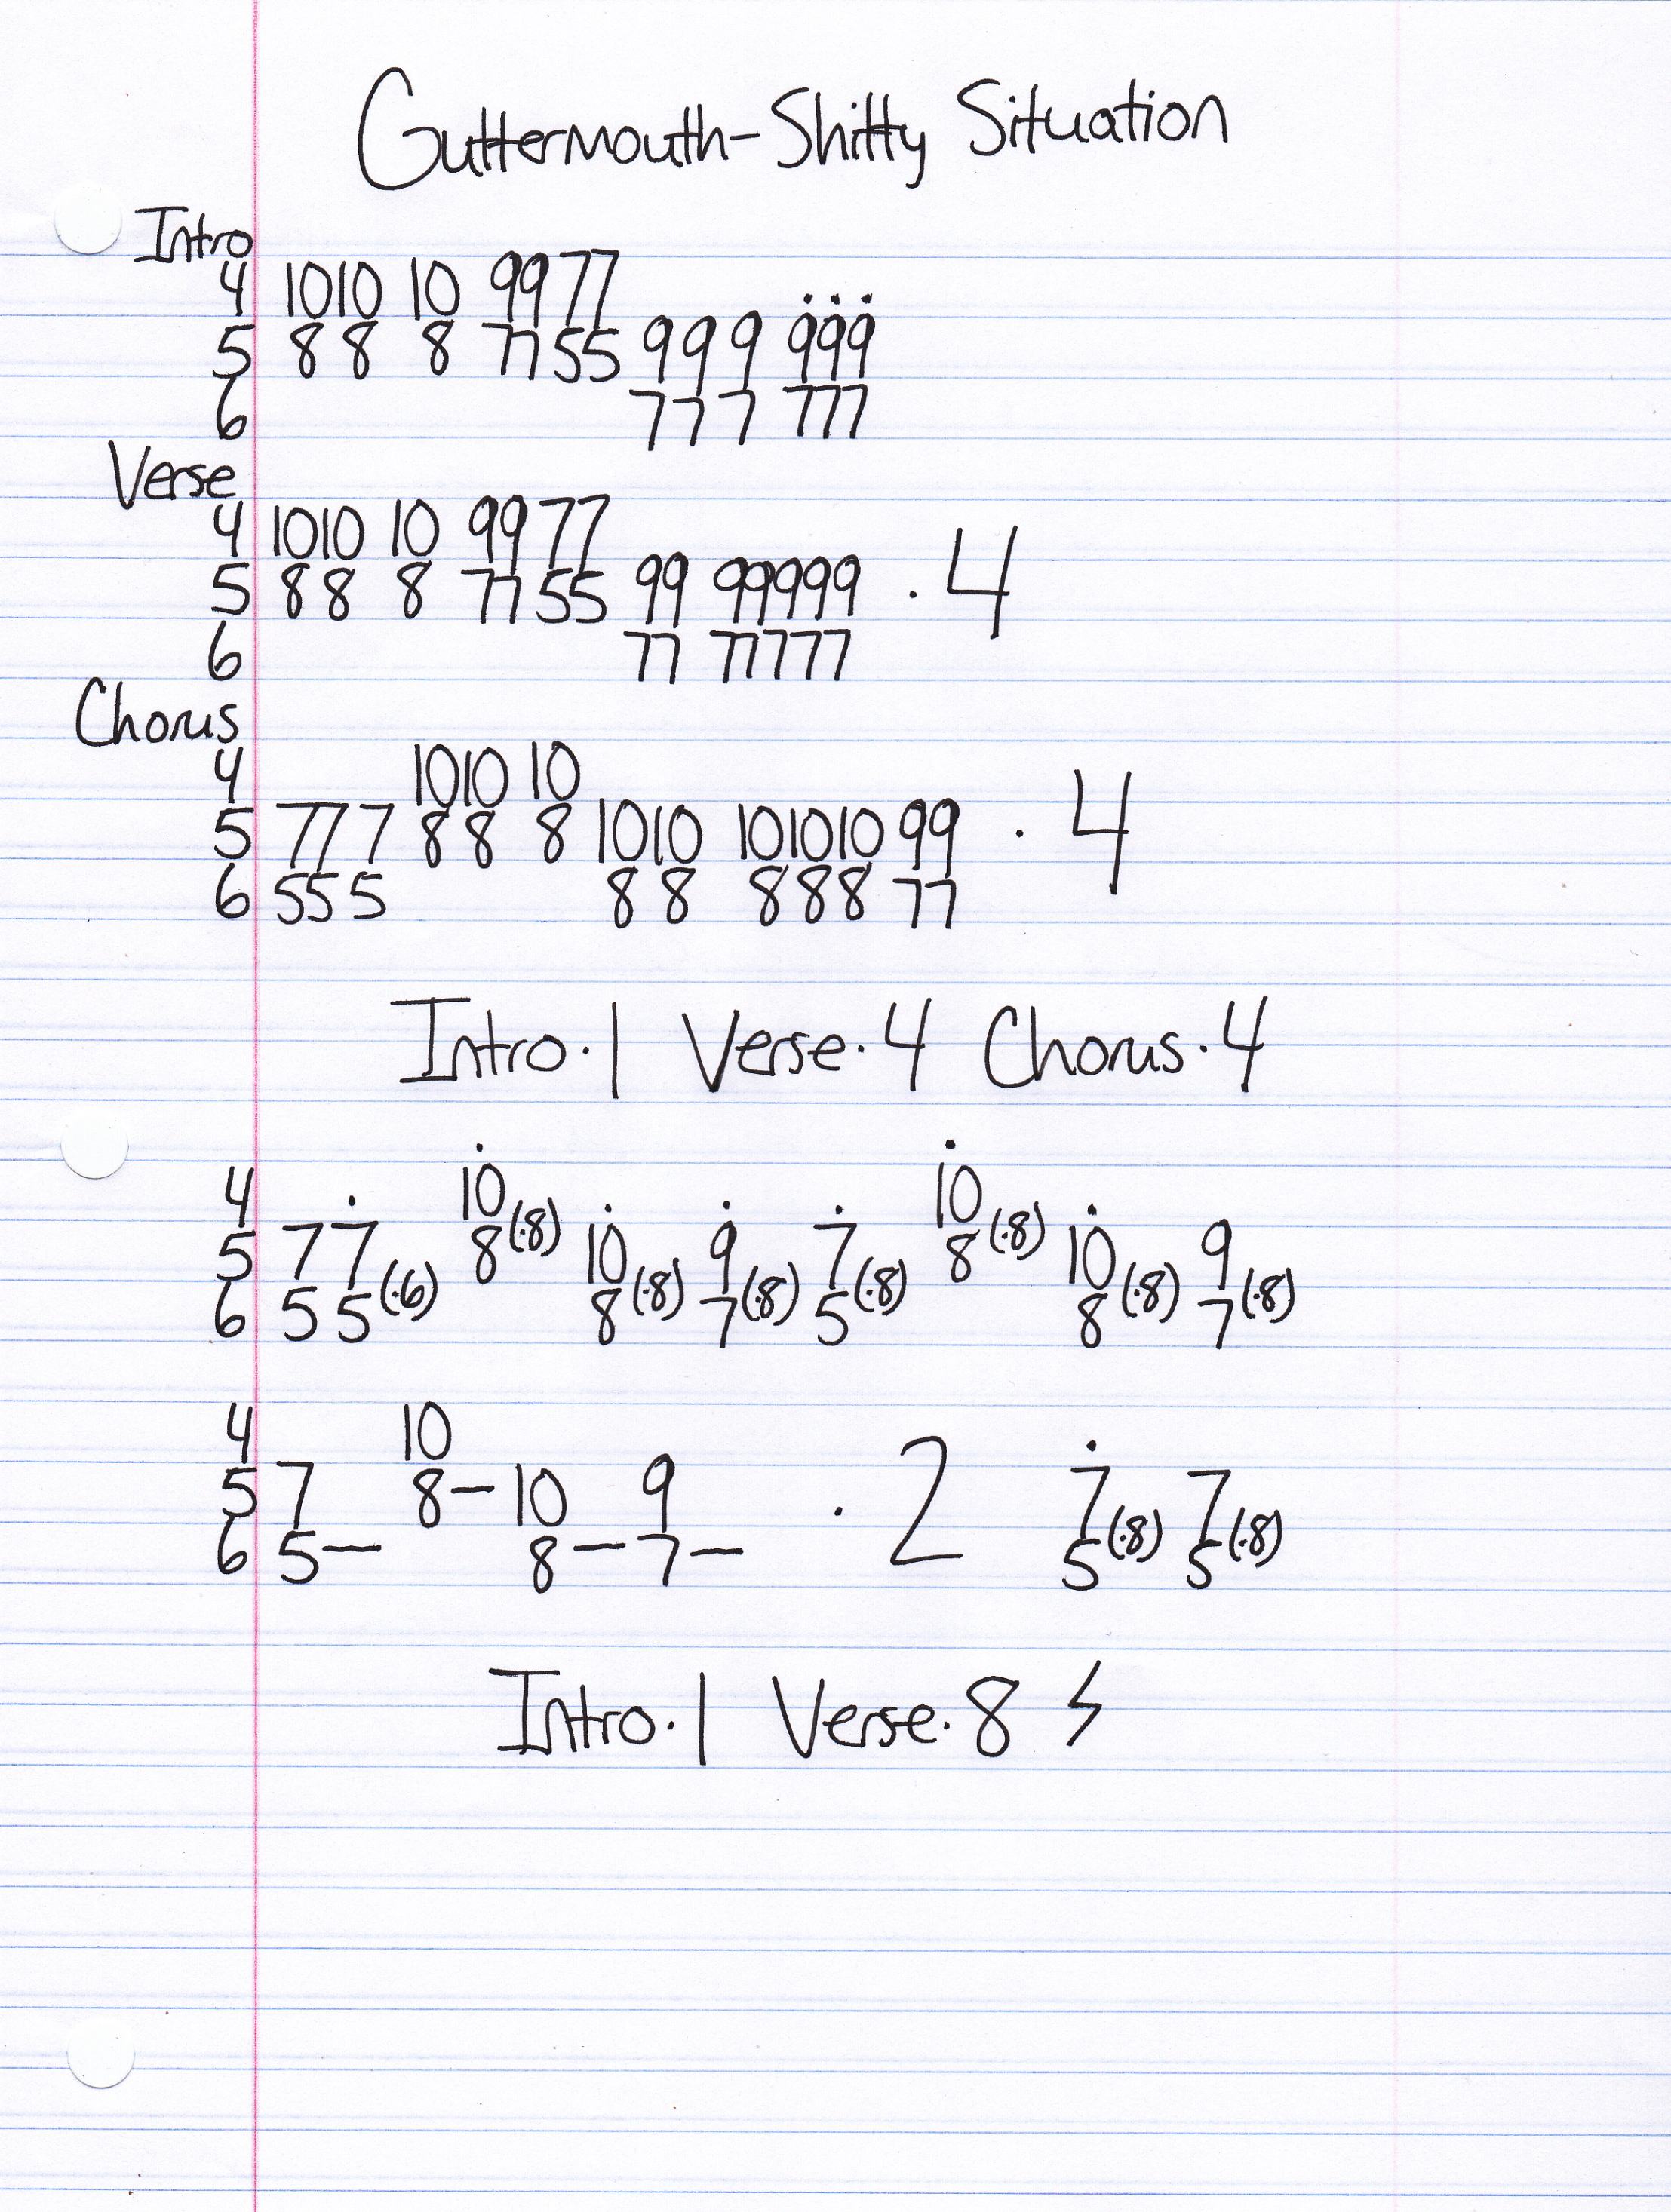 Guttermouth-Shitty Situation
Intro
4 1010 10 99 77
5 88 8 77 55 999 999
6 777 777
Verse
4 1010 10 99 77
5 88 8 77 55 99 99999 · 4
6 77 77777
Chorus
4 1010 10
5 777 88 8 1010 101010 99 · 4
6 555 88 888 77
Intro·1 Verse·4 Chorus·4
4 10 10
5 7 7 8(·8) 10 9 7 8(·8) 10 9
6 5 5(·6) 8(·8) 7(·8) 5(·8) 8(·8) 7(·8)
4 10
5 7 8– 10 9 · 2 7 7
6 5– 8– 7– 5(·8) 5(·8)
Intro·1 Verse·8 ϟ